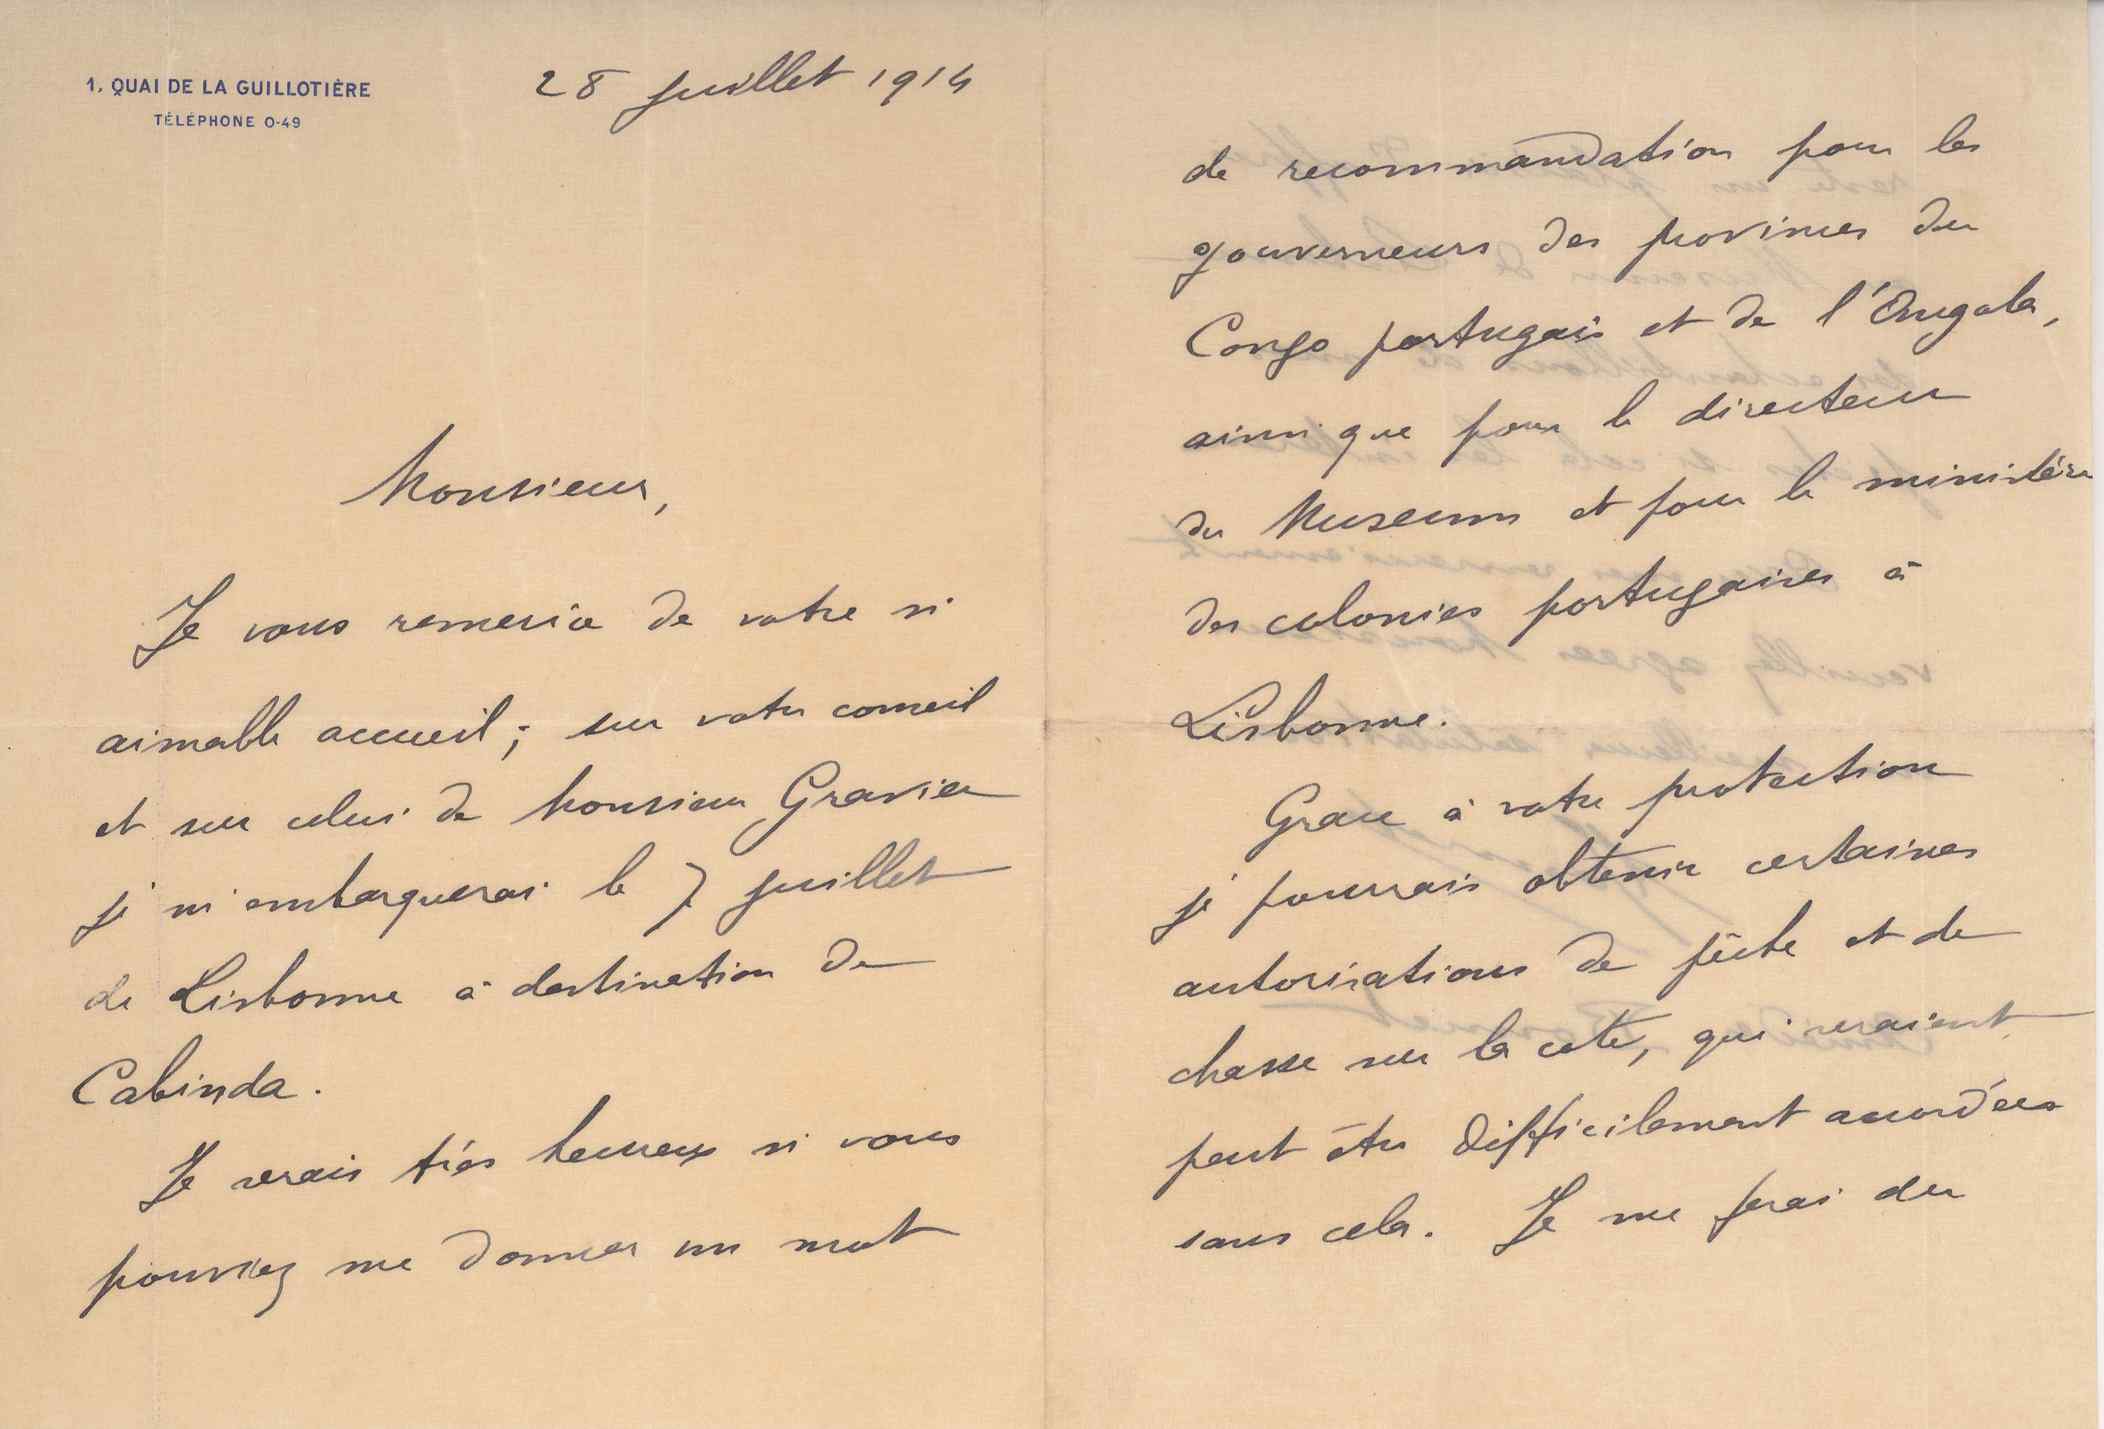 1, QUAI DE LA GUILLOTIÈRE
TÉLÉPHONE 0-49
28 juillet 1914
Monsieur,
Je vous remercie de votre si
aimable accueil ; sur votre conseil
et sur celui de Monsieur Gravier
je m'embarquerai le 7 juillet
de Lisbonne à destination de
Cabinda.
Je serais très heureux si vous
pouviez me donner un mot
de recommandation pour les
gouverneurs des provinces du
Congo portugais et de l'Angola,
ainsi que pour le directeur
du Museum et pour le ministère
des colonies portugaises à
Lisbonne.
Grace à votre protection
je pourrais obtenir certaines
autorisations de pêche et de
chasse sur la cote, qui seraient
peut être difficilement accordées
sans cela. Je me ferai du